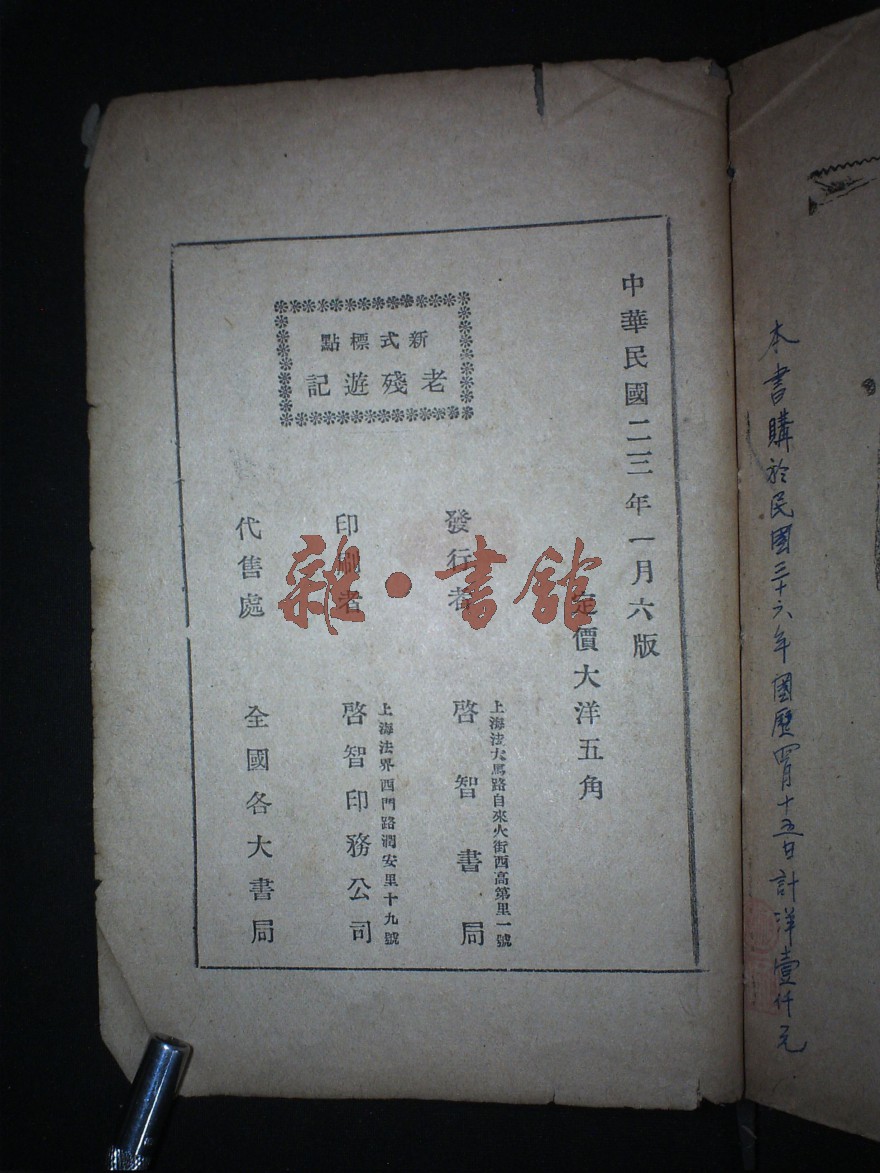 本書購於民國三十六年國歷四月十五日計洋壹仟元
中華民國二三年一月六版
定價大洋五角
新式標點
老殘遊記
發行者
上海法大馬路自來火街西高第里一號
啓智書局
印刷者
上海法界西門路潤安里十九號
啓智印務公司
代售處
全國各大書局
雜·書館